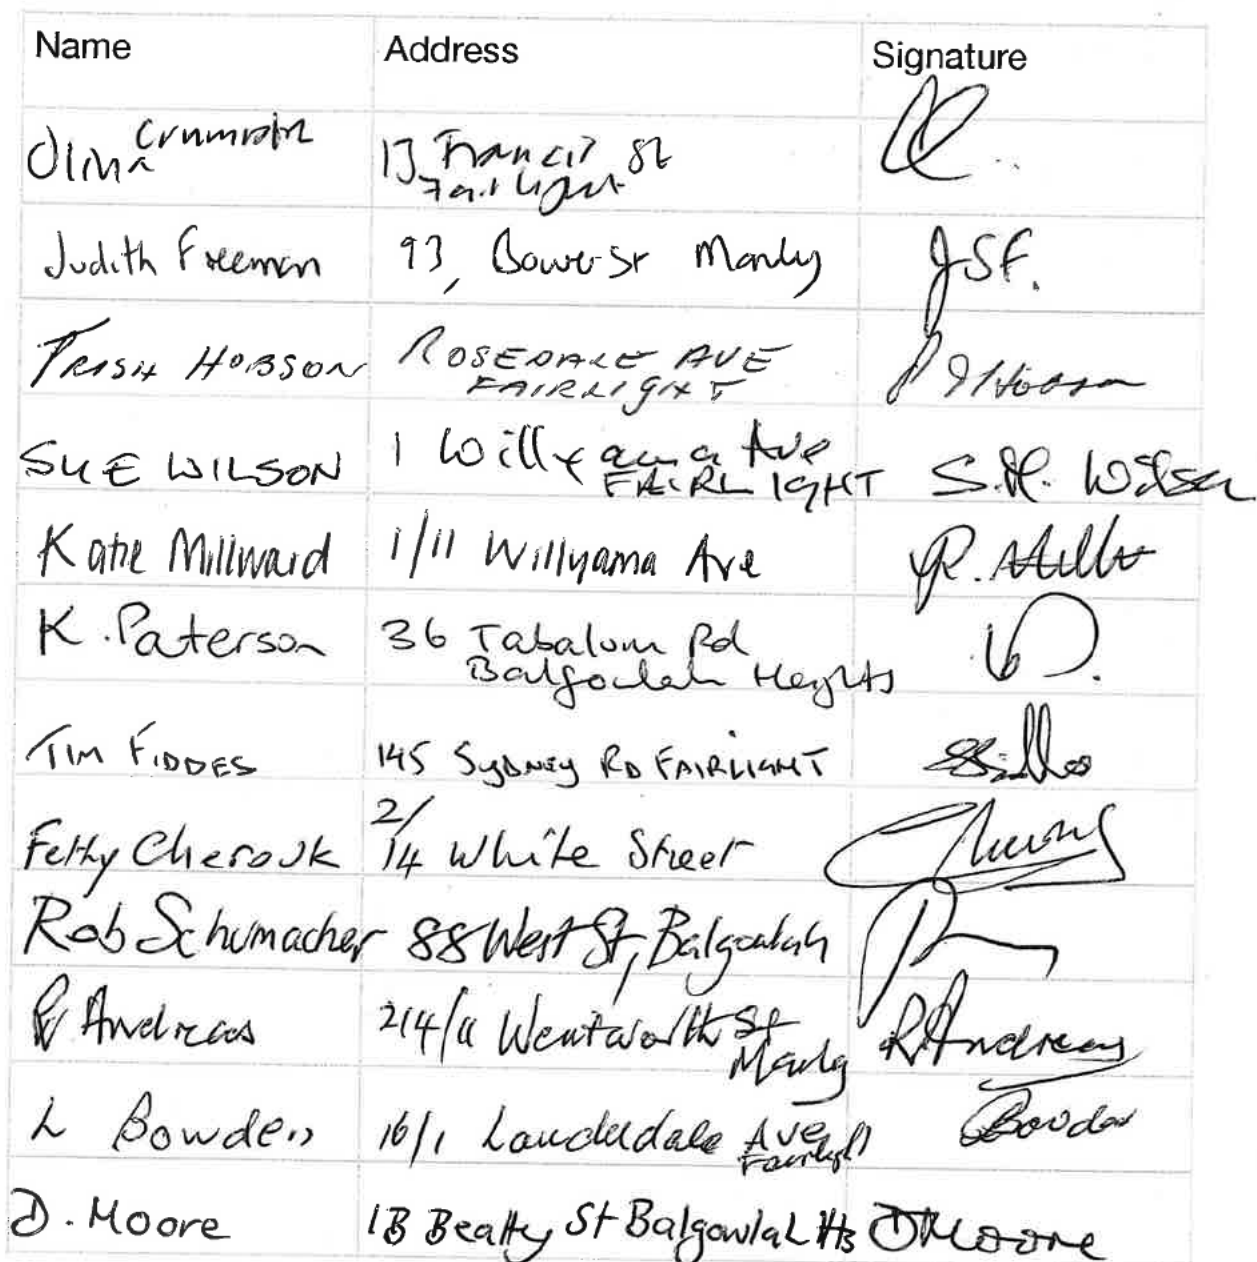 Name Address Signature
Crummer
Olivia 13 Francis St
Fairlight
Judith Freeman 93, Bower St Manly JSF.
TRISH HOBSON ROSEDALE AVE
FAIRLIGHT P J Hobson
SUE WILSON 1 Willyama Ave
FAIRLIGHT S.M. Wilson
Katie Millward 1/11 Willyama Ave
K. Paterson 36 Tabalum Rd
Balgowlah Heights
TIM FIDDES 145 SYDNEY RD FAIRLIGHT
2/
Cherouk 14 White Street
Rob Schumacher 88 West St, Balgowlah
R Andreas 214/11 Wentworth St
Manly R Andreas
L Bowden 16/1 Lauderdale Ave
Fairlight Bowden
D. Moore 1B Beatty St Balgowlah Hts D Moore